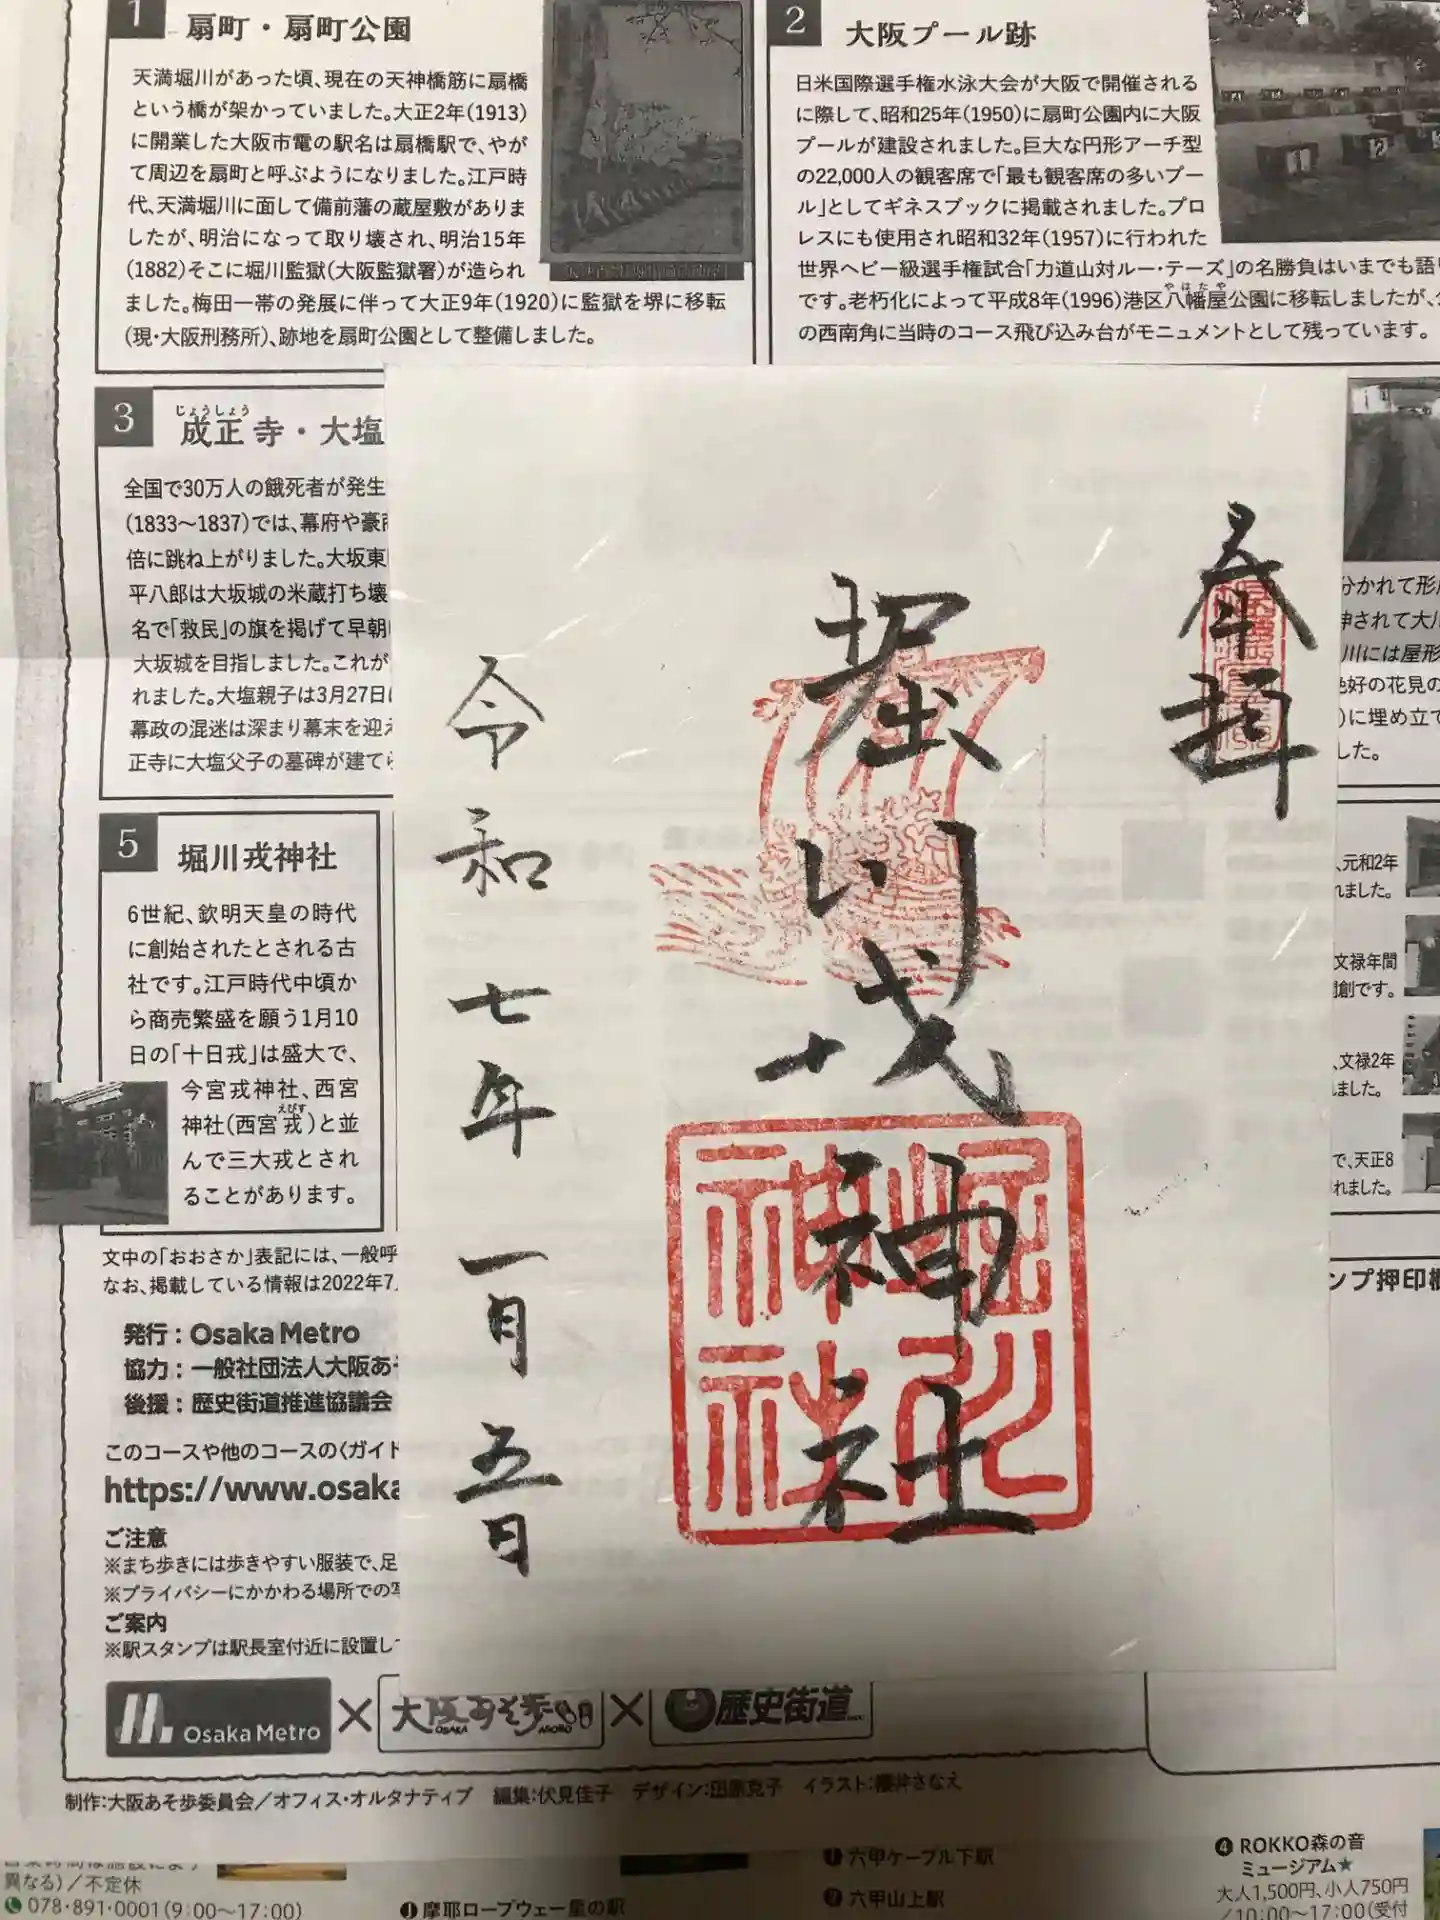 1
扇町・扇町公園
天満堀川があった頃、現在の天神橋筋に扇橋
という橋が架かっていました。大正2年(1913)
に開業した大阪市電の駅名は扇橋駅で、やが
て周辺を扇町と呼ぶようになりました。江戸時
代、天満堀川に面して備前藩の蔵屋敷がありま
したが、明治になって取り壊され、明治15年
(1882)そこに堀川監獄(大阪監獄署)が造られ
ました。梅田一帯の発展に伴って大正9年(1920)に監獄を堺に移転
(現・大阪刑務所)、跡地を扇町公園として整備しました。
2
大阪プール跡
日米国際選手権水泳大会が大阪で開催される
に際して、昭和25年(1950)に扇町公園内に大阪
プールが建設されました。巨大な円形アーチ型
の22,000人の観客席で「最も観客席の多いプー
ル」としてギネスブックに掲載されました。プロ
レスにも使用され昭和32年(1957)に行われた
世界ヘビー級選手権試合「力道山対ルー・テーズ」の名勝負はいまでも語り
です。老朽化によって平成8年(1996)港区八幡屋公園に移転しましたが、
やはたや
の西南角に当時のコース飛び込み台がモニュメントとして残っています。
3
じょうしょう
成正寺・大塩
全国で30万人の餓死者が発生
(1833〜1837)では、幕府や豪商
倍に跳ね上がりました。大坂東
平八郎は大坂城の米蔵打ち壊
名で「救民」の旗を掲げて早朝
大坂城を目指しました。これが
れました。大塩親子は3月27日
幕政の混迷は深まり幕末を迎え
正寺に大塩父子の墓碑が建てら
5
堀川戎神社
6世紀、欽明天皇の時代
に創始されたとされる古
社です。江戸時代中頃か
ら商売繁盛を願う1月10
日の「十日戎」は盛大で、
今宮戎神社、西宮
えびす
神社(西宮戎)と並
んで三大戎とされ
ることがあります。
奉拝
堀川戎神社
令和七年一月五日
堀川
神社
分かれて形
神されて大川
川には屋形
絶好の花見の
)に埋め立て
した。
、元和2年
れました。
文禄年間
創です。
、文禄2年
ました。
で、天正8
れました。
ンプ押印欄
文中の「おおさか」表記には、一般呼
なお、掲載している情報は2022年7
発行：Osaka Metro
協力：一般社団法人大阪あそ
後援：歴史街道推進協議会
このコースや他のコースの〈ガイド
https://www.osaka
ご注意
※まち歩きには歩きやすい服装で、足
※プライバシーにかかわる場所での写
ご案内
※駅スタンプは駅長室付近に設置して
Osaka Metro × 大阪あそ歩 OSAKA ASOBO × 歴史街道
制作：大阪あそ歩委員会／オフィス・オルタナティブ 編集：伏見佳子 デザイン：田原克子 イラスト：櫻井さなえ
異なる)／不定休
078・891・0001(9:00〜17:00)
J 摩耶ロープウェー星の駅
1 六甲ケーブル下駅
2 六甲山上駅
4 ROKKO森の音
ミュージアム★
大人1,500円、小人750円
／10:00〜17:00(受付